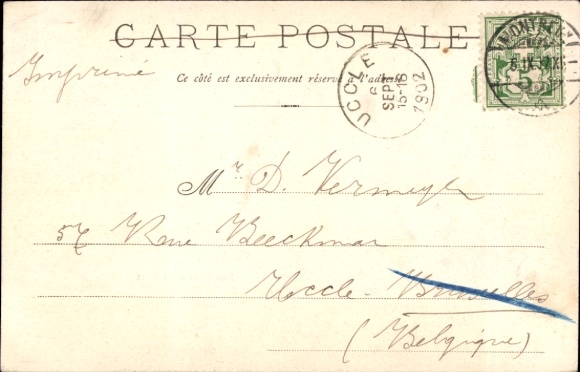 CARTE POSTALE
Imprimé
Ce côté est exclusivement réservé à l'adresse
UCCLE
6
SEPT
15-16
1902
MONTREUX
5
Mr D. Vermeylen
57 Rue Beeckman
Uccle-Bruxelles
(Belgique)